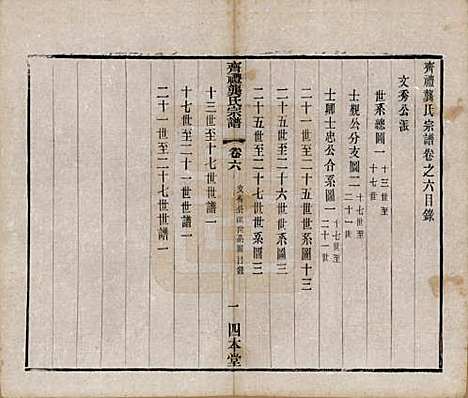 齊禮龔氏宗譜卷之六目錄
文秀公派
世系總圖一 十三世至十七世
士親公分支圖二 十七世至二十一世
士卿士忠公合系圖一 十七世至二十一世
二十一世至二十五世世系圖十三
二十五世至二十六世世系圖二
二十五世至二十七世世系圖三
齊禮龔氏宗譜 卷六 文秀公派世系圖目錄 一 四本堂
十三世至十七世世譜一
十七世至二十一世世譜一
二十一世至二十七世世譜一